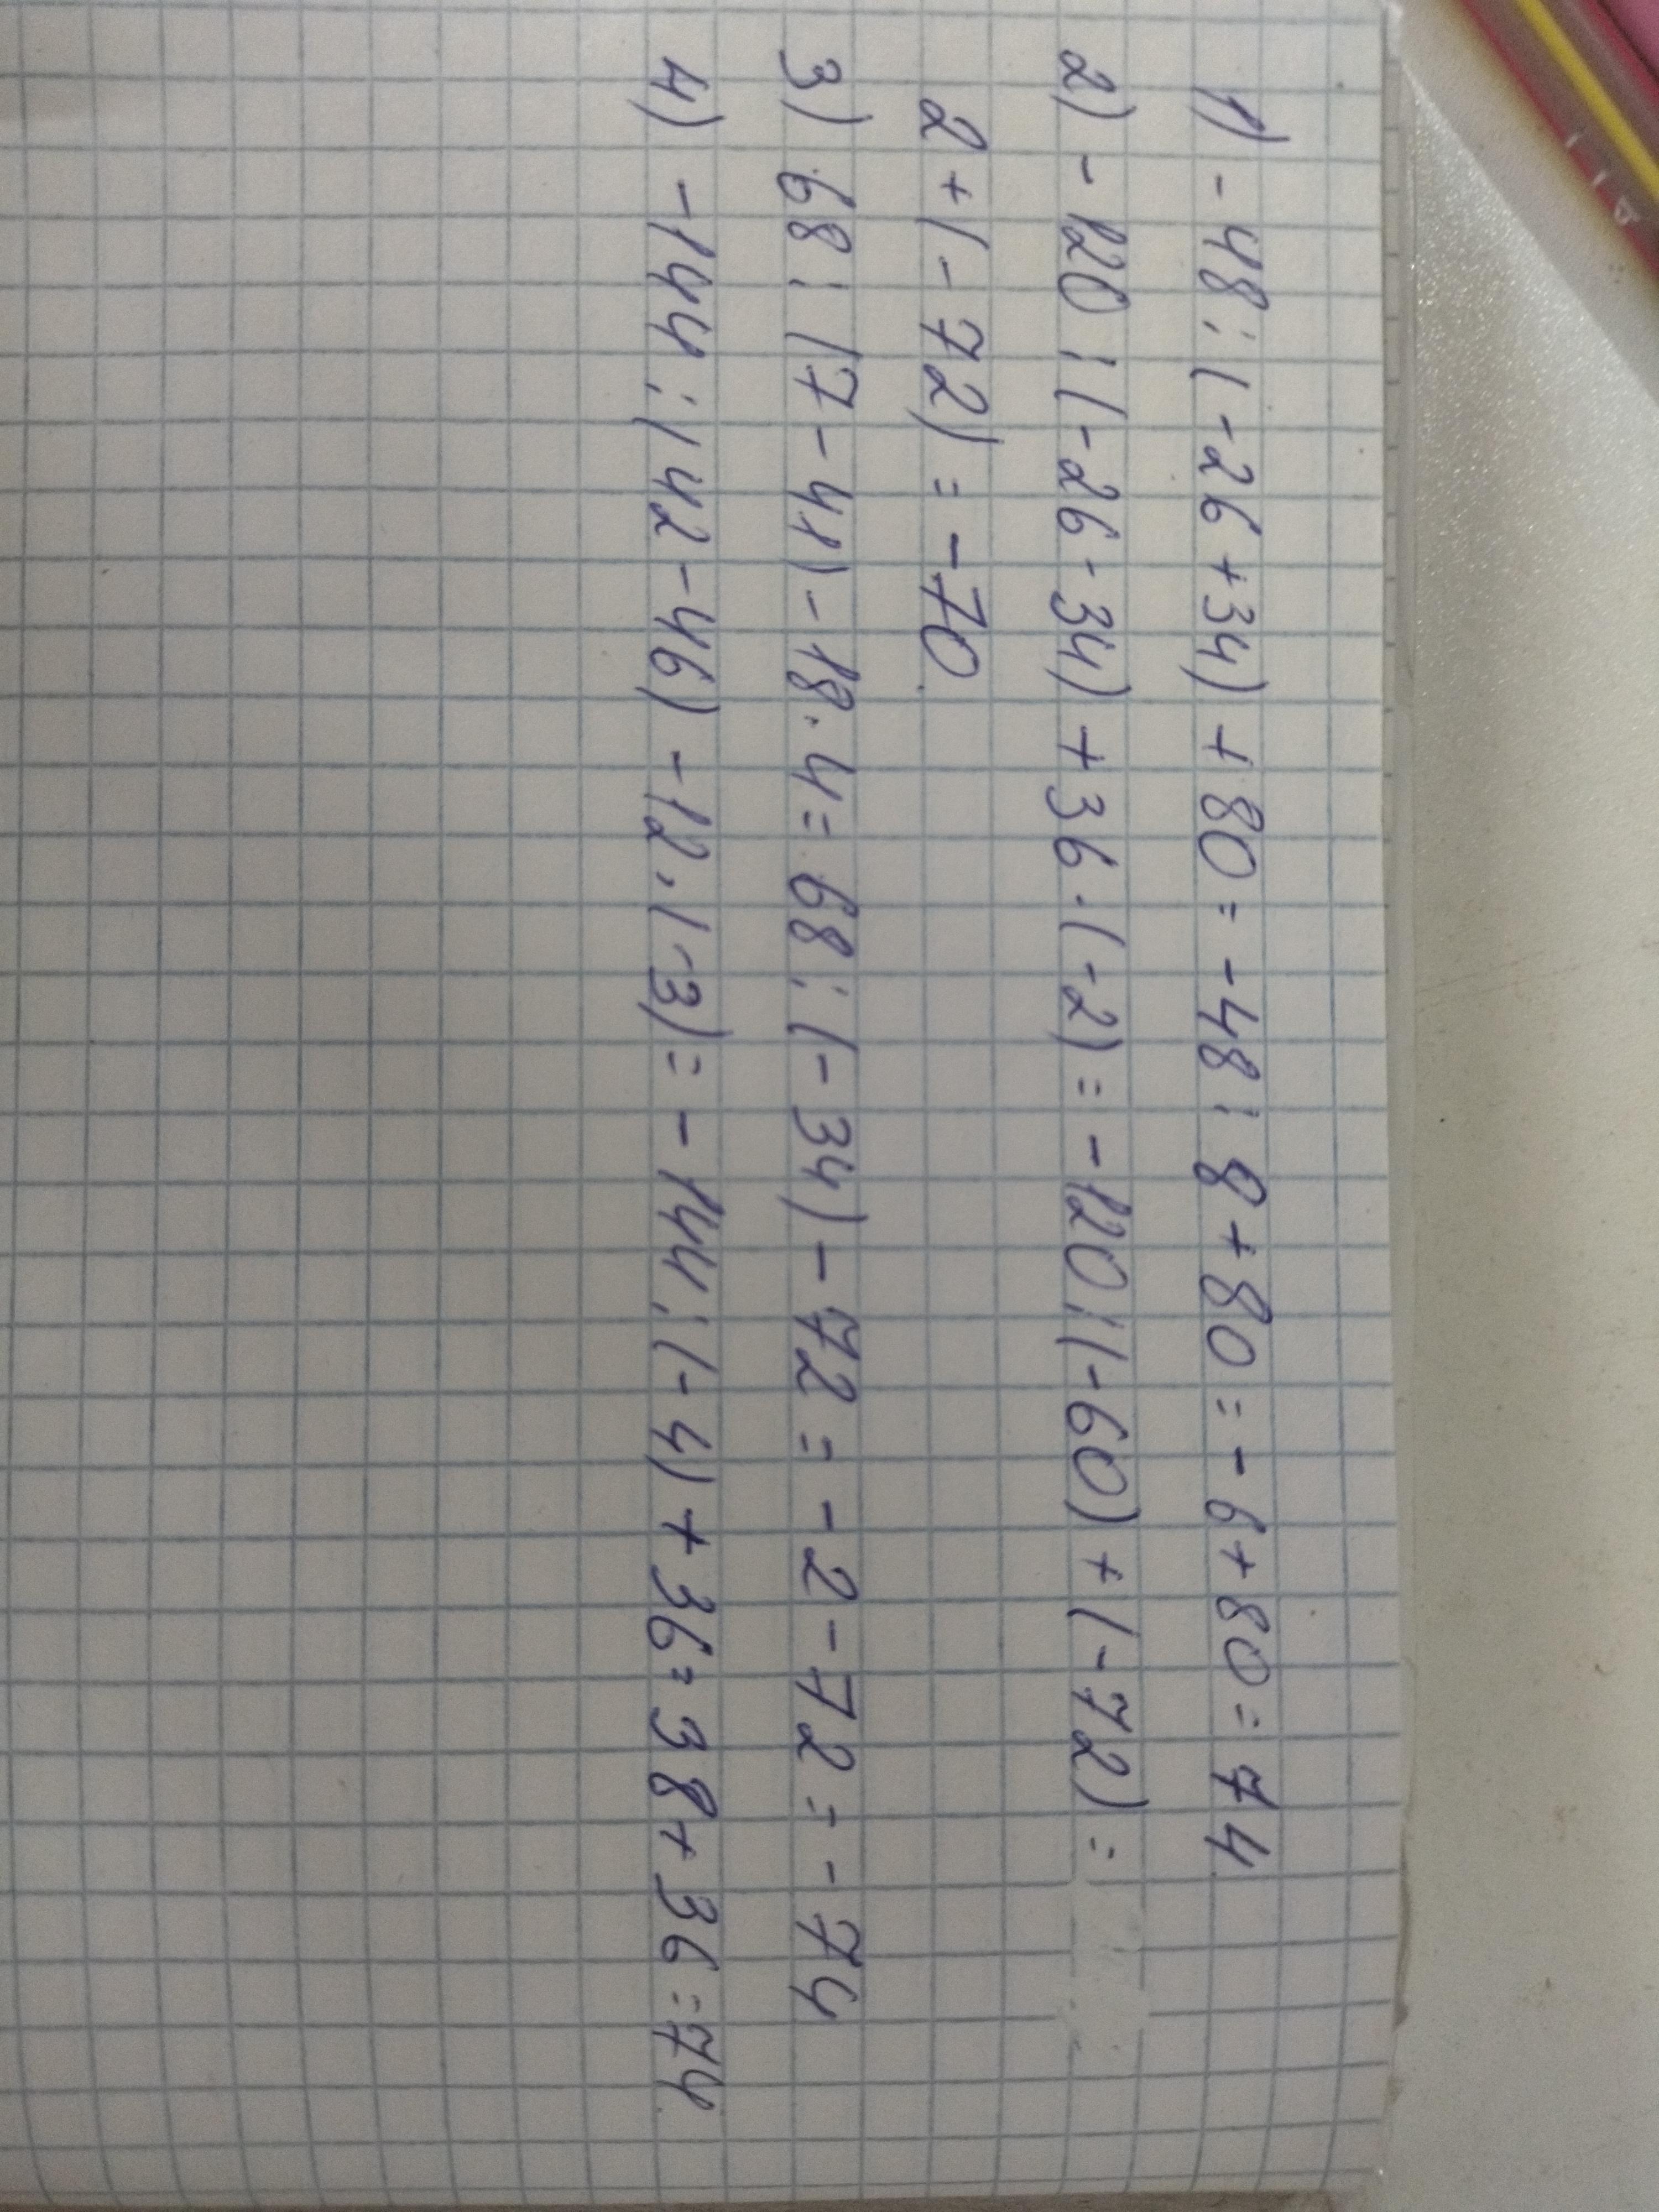 1) - 48 : (-26 + 34) + 80 = - 48 : 8 + 80 = - 6 + 80 = 74
2) - 120 : (-26 - 34) + 36 · (-2) = - 120 : (-60) + (-72) =
2 + (-72) = - 70.
3) 68 : (7 - 41) - 18 · 4 = 68 : (-34) - 72 = - 2 - 72 = - 74
4) - 144 : (42 - 46) - 12 · (-3) = - 144 : (-4) + 36 = 38 + 36 = 74.